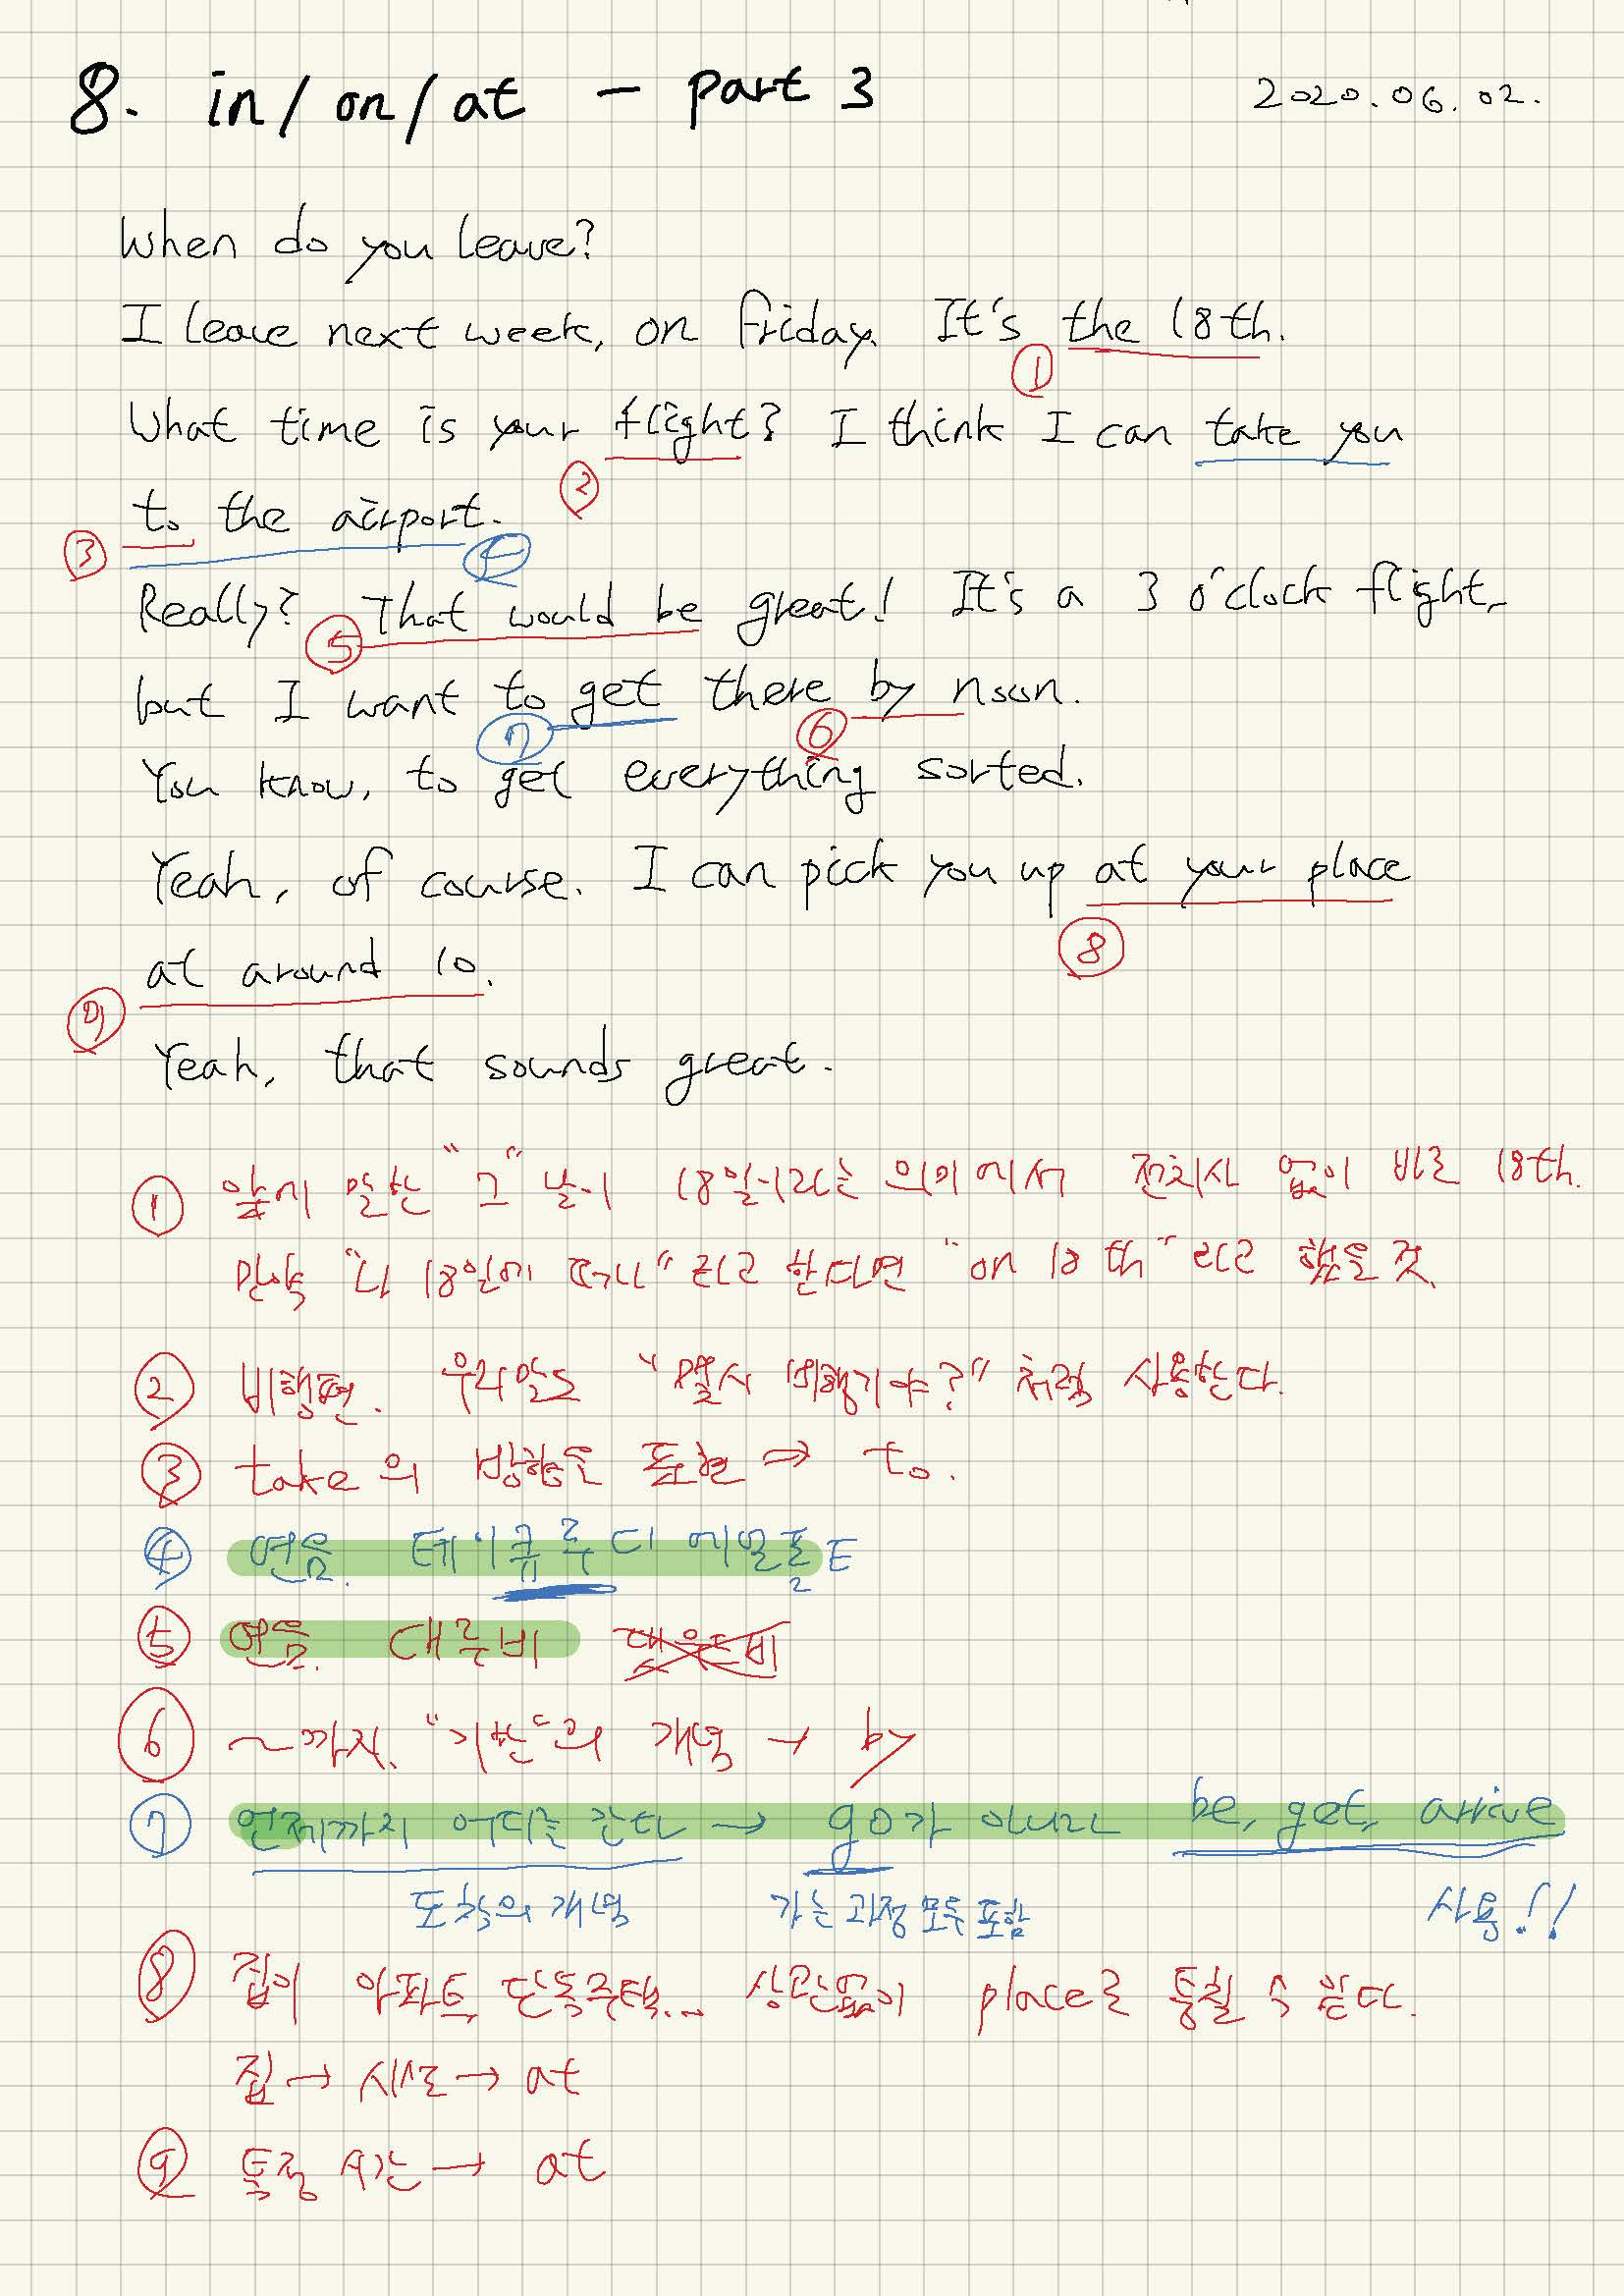 8. in/on/at - part 3
2020.06.02.
When do you leave?
I leave next week, on friday. It's the 18th.
①
What time is your flight? I think I can take you
②
to the airport.
③ ④
Really? That would be great! It's a 3 o'clock flight,
⑤
but I want to get there by noon.
⑦ ⑥
You know, to get everything sorted.
Yeah, of course. I can pick you up at your place
⑧
at around 10.
⑨
Yeah, that sounds great.
① 앞에 말한 "그" 날이 18일이라는 의미에서 전치사 없이 바로 18th.
만약 "나 18일에 떠나" 라고 한다면 "on 18th" 라고 했을 것.
② 비행편. 우리말도 "몇시 비행기야?" 처럼 사용한다.
③ take의 방향을 표현 ⇒ to.
④ 연음. 테이큐루디에얼폴트
⑤ 연음. 대루비 댓우드비
⑥ ~까지. "기한"의 개념 → by
⑦ 언제까지 어디를 간다 → go가 아니라 be, get, arrive
도착의 개념 가는 과정 모두 포함 사용!!
⑧ 집이 아파트, 단독주택... 상관없이 place로 퉁칠 수 있다.
집 → 시설로 → at
⑨ 특정 시간 → at